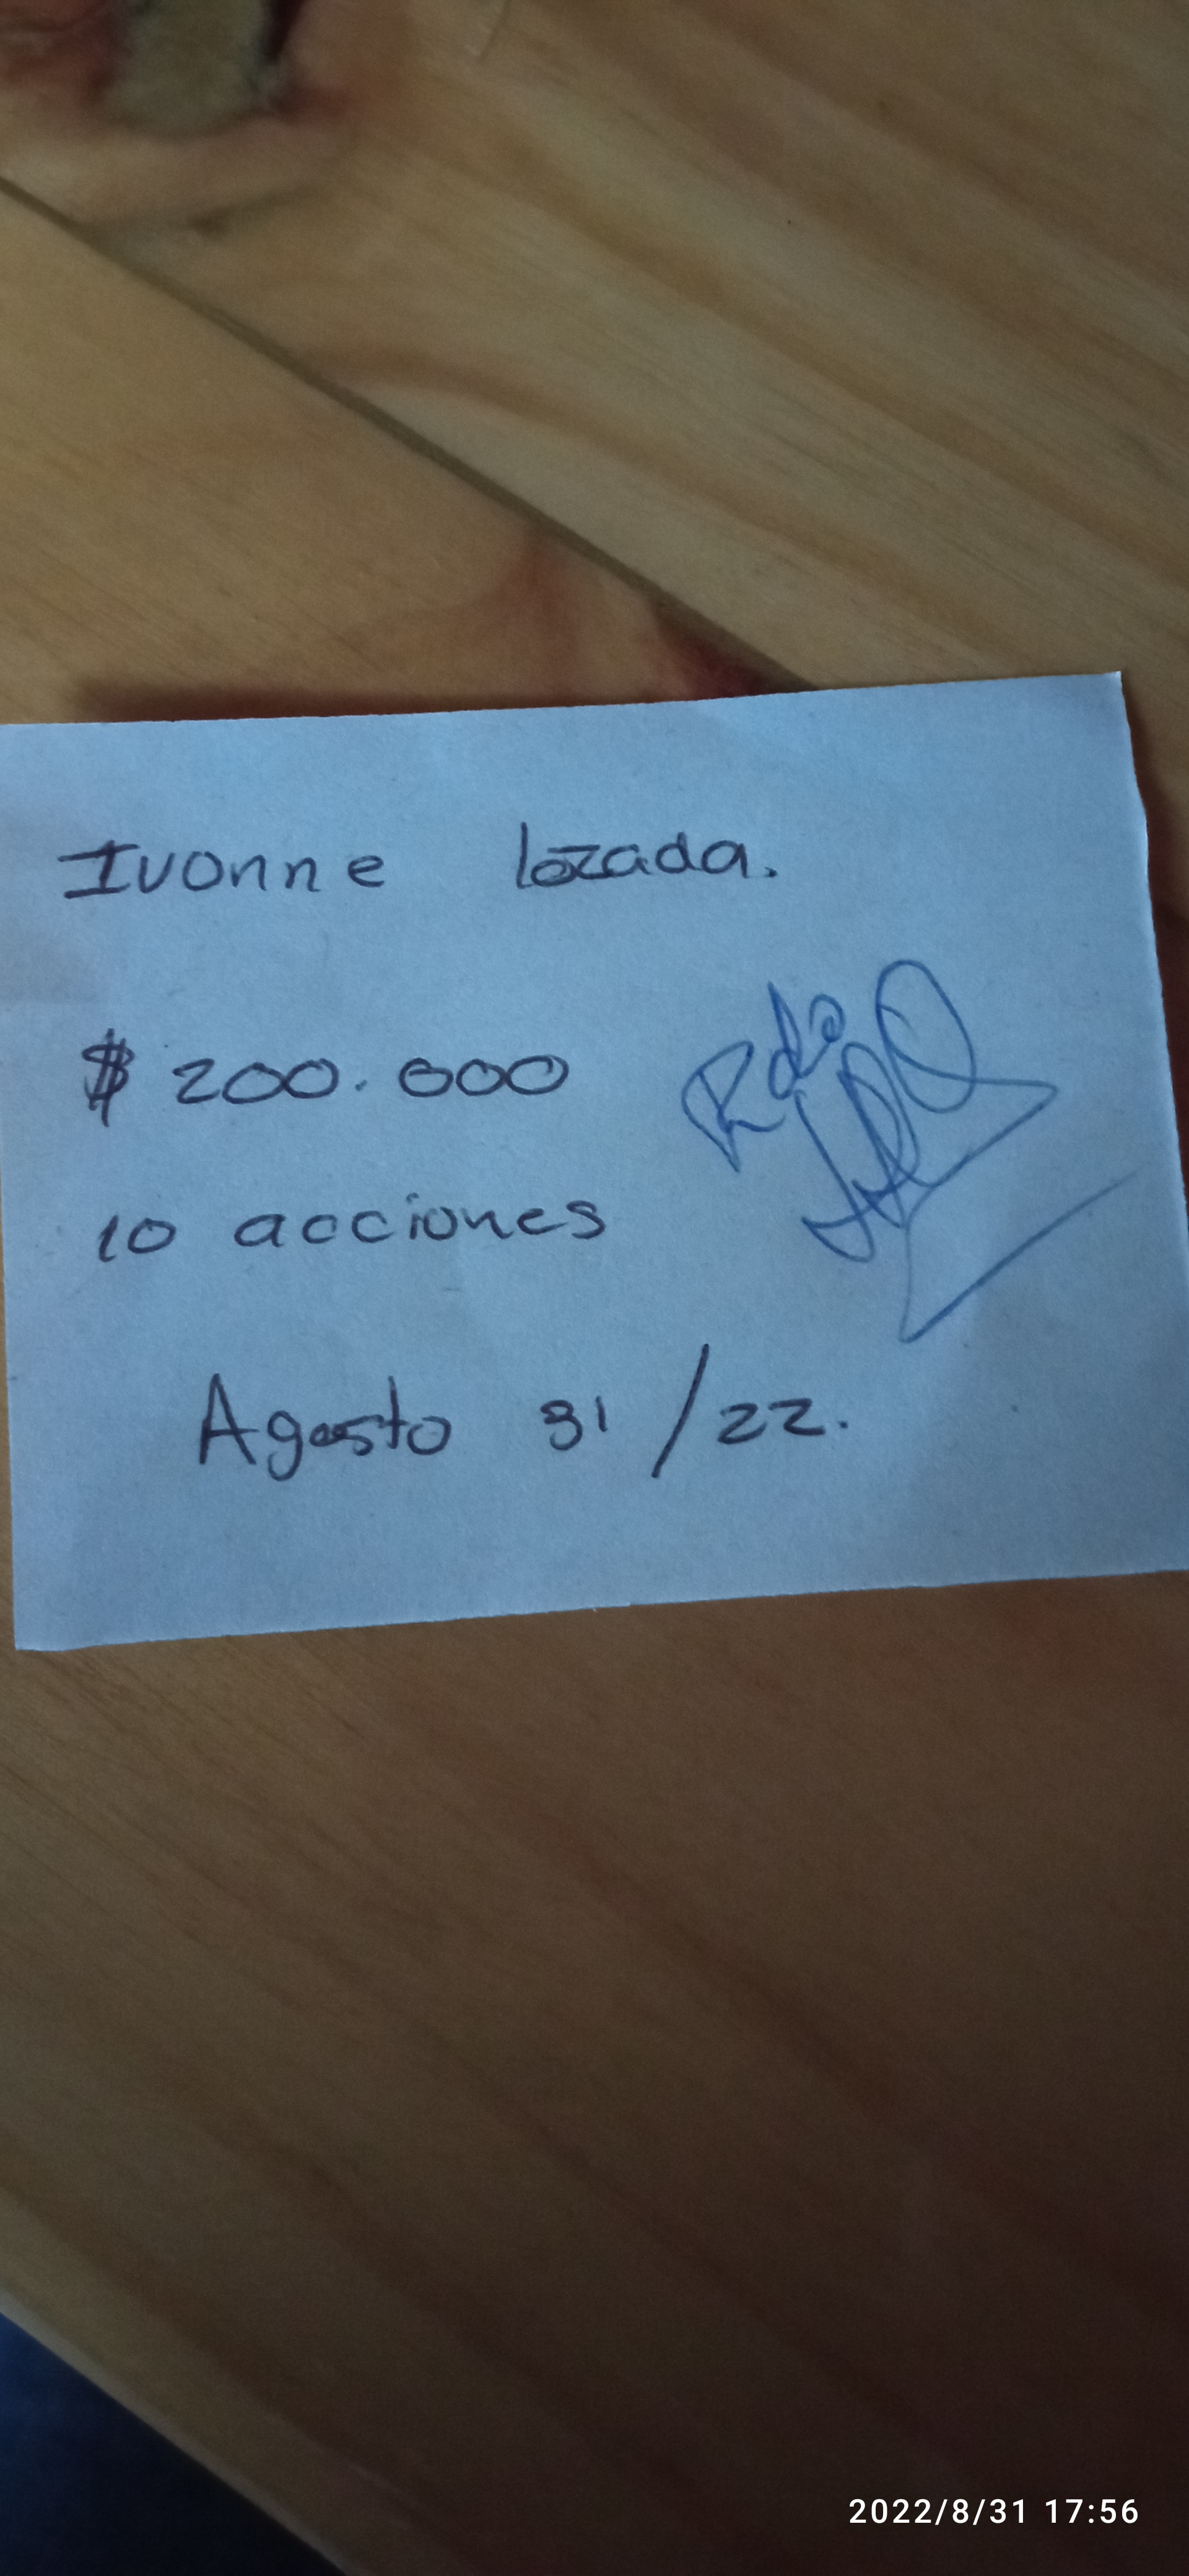 Ivonne lozada.
$ 200.000
Rdo
10 acciones
Agosto 31/22.
2022/8/31 17:56